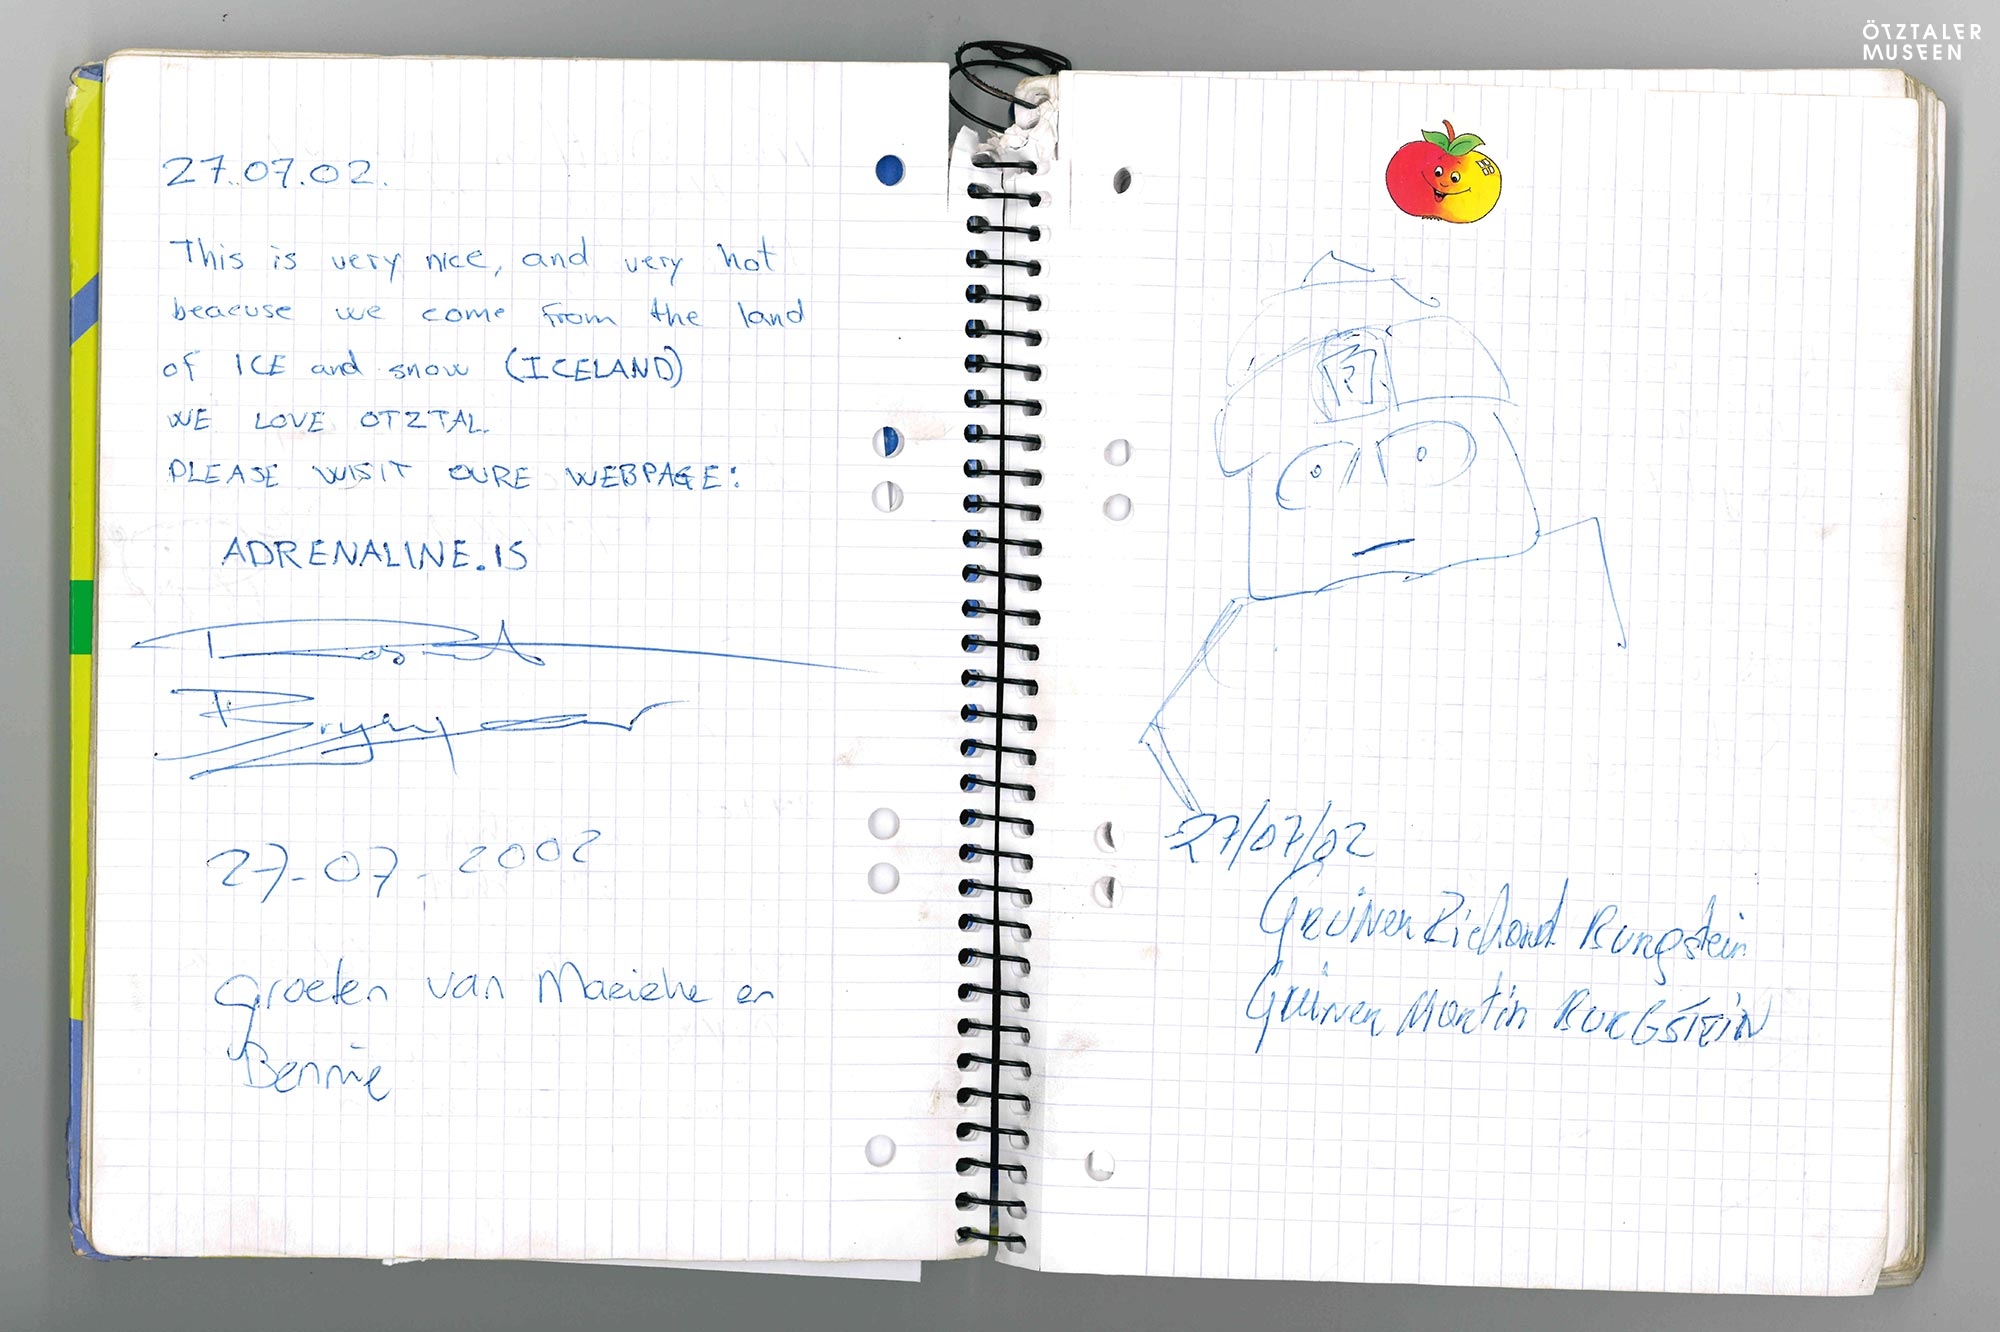 ÖTZTALER
MUSEEN
27.07.02.
This is very nice, and very hot
beacuse we come from the land
of ICE and snow (ICELAND)
WE LOVE OTZTAL.
PLEASE WISIT OURE WEBPAGE:
ADRENALINE.IS
27-07-2002
Groeten van Marieke en
Bennie
27/07/02
GRüNER Richard Burgstein
Grüner Martin BURGSTEIN